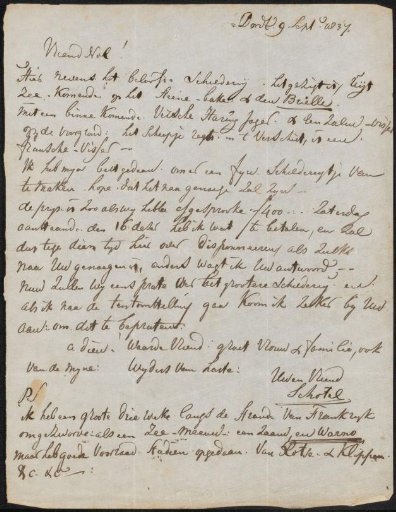 Dordt 9 Sept. 1837.
Vriend Nal!
Hier nevens het beloofde Schilderij. het gezigt is uijt
Zee komende op het Steine baken & den Brielle.
met een binne komende Vissche Haring Jager. & een Zalm-visser
op de voorgrond. het Scheepje regts in 't Verschiet, is een
fransche Visser —
Ik heb mijn best gedaan om er een fijn Schilderijtje van
te maken hope dat het naar genoege zal zijn —
de prijs is zoo als wij hebbe afgesproke f400... Zaturdag
aanstaande den 16 dezer heb ik wat te betalen, en zal
dus tege dien tijd hier over disponneeren als zulks
naar Uw genoegen is, anders wagt ik Uw antwoord —
Nuw zulle wij eens prate over het grootere Schilderij en
als ik naa de tentoonstelling gaa koom ik zeker bij Uw
aan: om dit te bepraten
a dieu! Waarde Vriend! groet Vrouw & familie, ook
van de mijne: Wijders van harte:
Uwen Vriend
Schotel
PS
ik heb een groote drie weke langs de Strande van Frankrijk
omgezworve als een Zee-Meeuw: een Zaand, en Warmo
maar heb goede Voorraad Studien opgedaan. van Rotse & Klippen
&c. &c —: